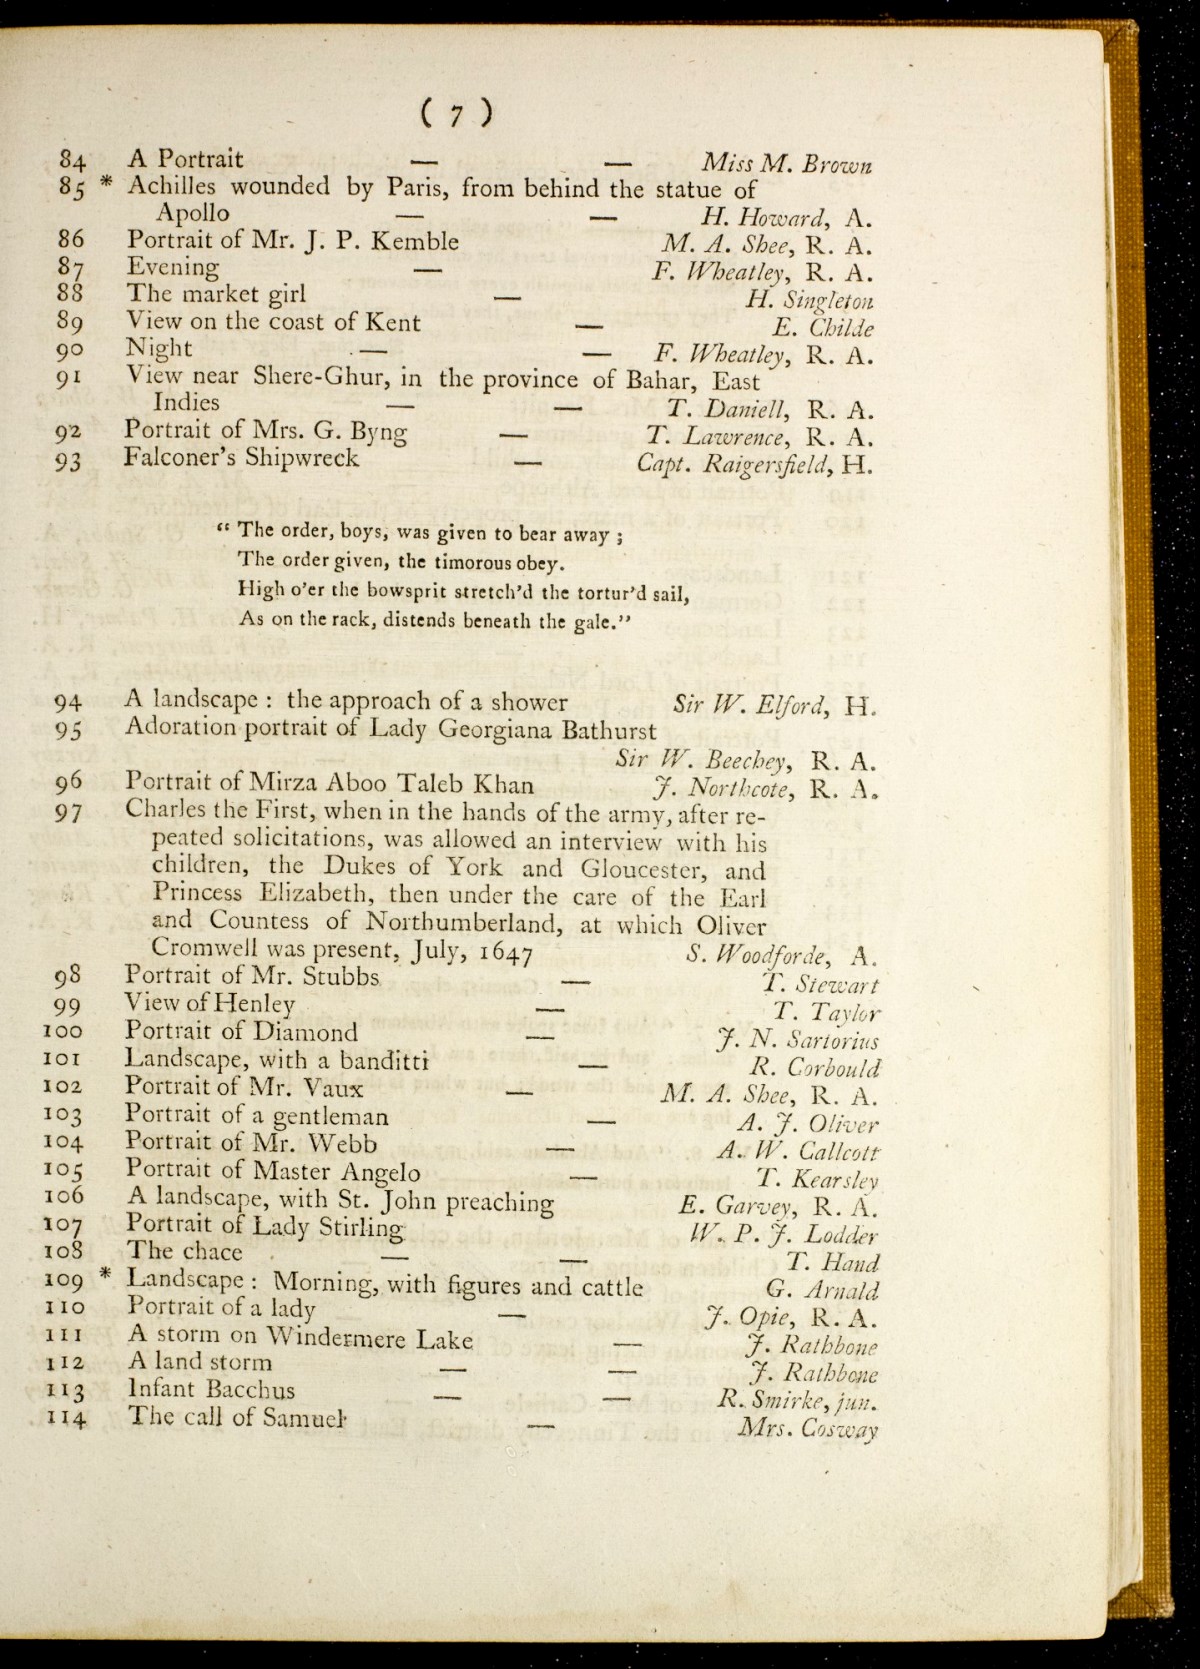 ( 7 )
84 A Portrait — — Miss M. Brown
85 * Achilles wounded by Paris, from behind the statue of
Apollo — — H. Howard, A.
86 Portrait of Mr. J. P. Kemble M. A. Shee, R. A.
87 Evening — F. Wheatley, R. A.
88 The market girl — H. Singleton
89 View on the coast of Kent — E. Childe
90 Night — — F. Wheatley, R. A.
91 View near Shere-Ghur, in the province of Bahar, East
Indies — — T. Daniell, R. A.
92 Portrait of Mrs. G. Byng — T. Lawrence, R. A.
93 Falconer's Shipwreck — Capt. Raigersfield, H.
“ The order, boys, was given to bear away ;
The order given, the timorous obey.
High o'er the bowsprit stretch'd the tortur'd sail,
As on the rack, distends beneath the gale.”
94 A landscape : the approach of a shower Sir W. Elford, H.
95 Adoration portrait of Lady Georgiana Bathurst
Sir W. Beechey, R. A.
96 Portrait of Mirza Aboo Taleb Khan J. Northcote, R. A.
97 Charles the First, when in the hands of the army, after re-
peated solicitations, was allowed an interview with his
children, the Dukes of York and Gloucester, and
Princess Elizabeth, then under the care of the Earl
and Countess of Northumberland, at which Oliver
Cromwell was present, July, 1647 S. Woodforde, A.
98 Portrait of Mr. Stubbs — T. Stewart
99 View of Henley — T. Taylor
100 Portrait of Diamond — J. N. Sartorius
101 Landscape, with a banditti — R. Corbould
102 Portrait of Mr. Vaux — M. A. Shee, R. A.
103 Portrait of a gentleman — A. J. Oliver
104 Portrait of Mr. Webb — A. W. Callcott
105 Portrait of Master Angelo — T. Kearsley
106 A landscape, with St. John preaching E. Garvey, R. A.
107 Portrait of Lady Stirling W. P. J. Lodder
108 The chace — — T. Hand
109 * Landscape : Morning, with figures and cattle G. Arnald
110 Portrait of a lady — J. Opie, R. A.
111 A storm on Windermere Lake — J. Rathbone
112 A land storm — — J. Rathbone
113 Infant Bacchus — — R. Smirke, jun.
114 The call of Samuel — Mrs. Cosway